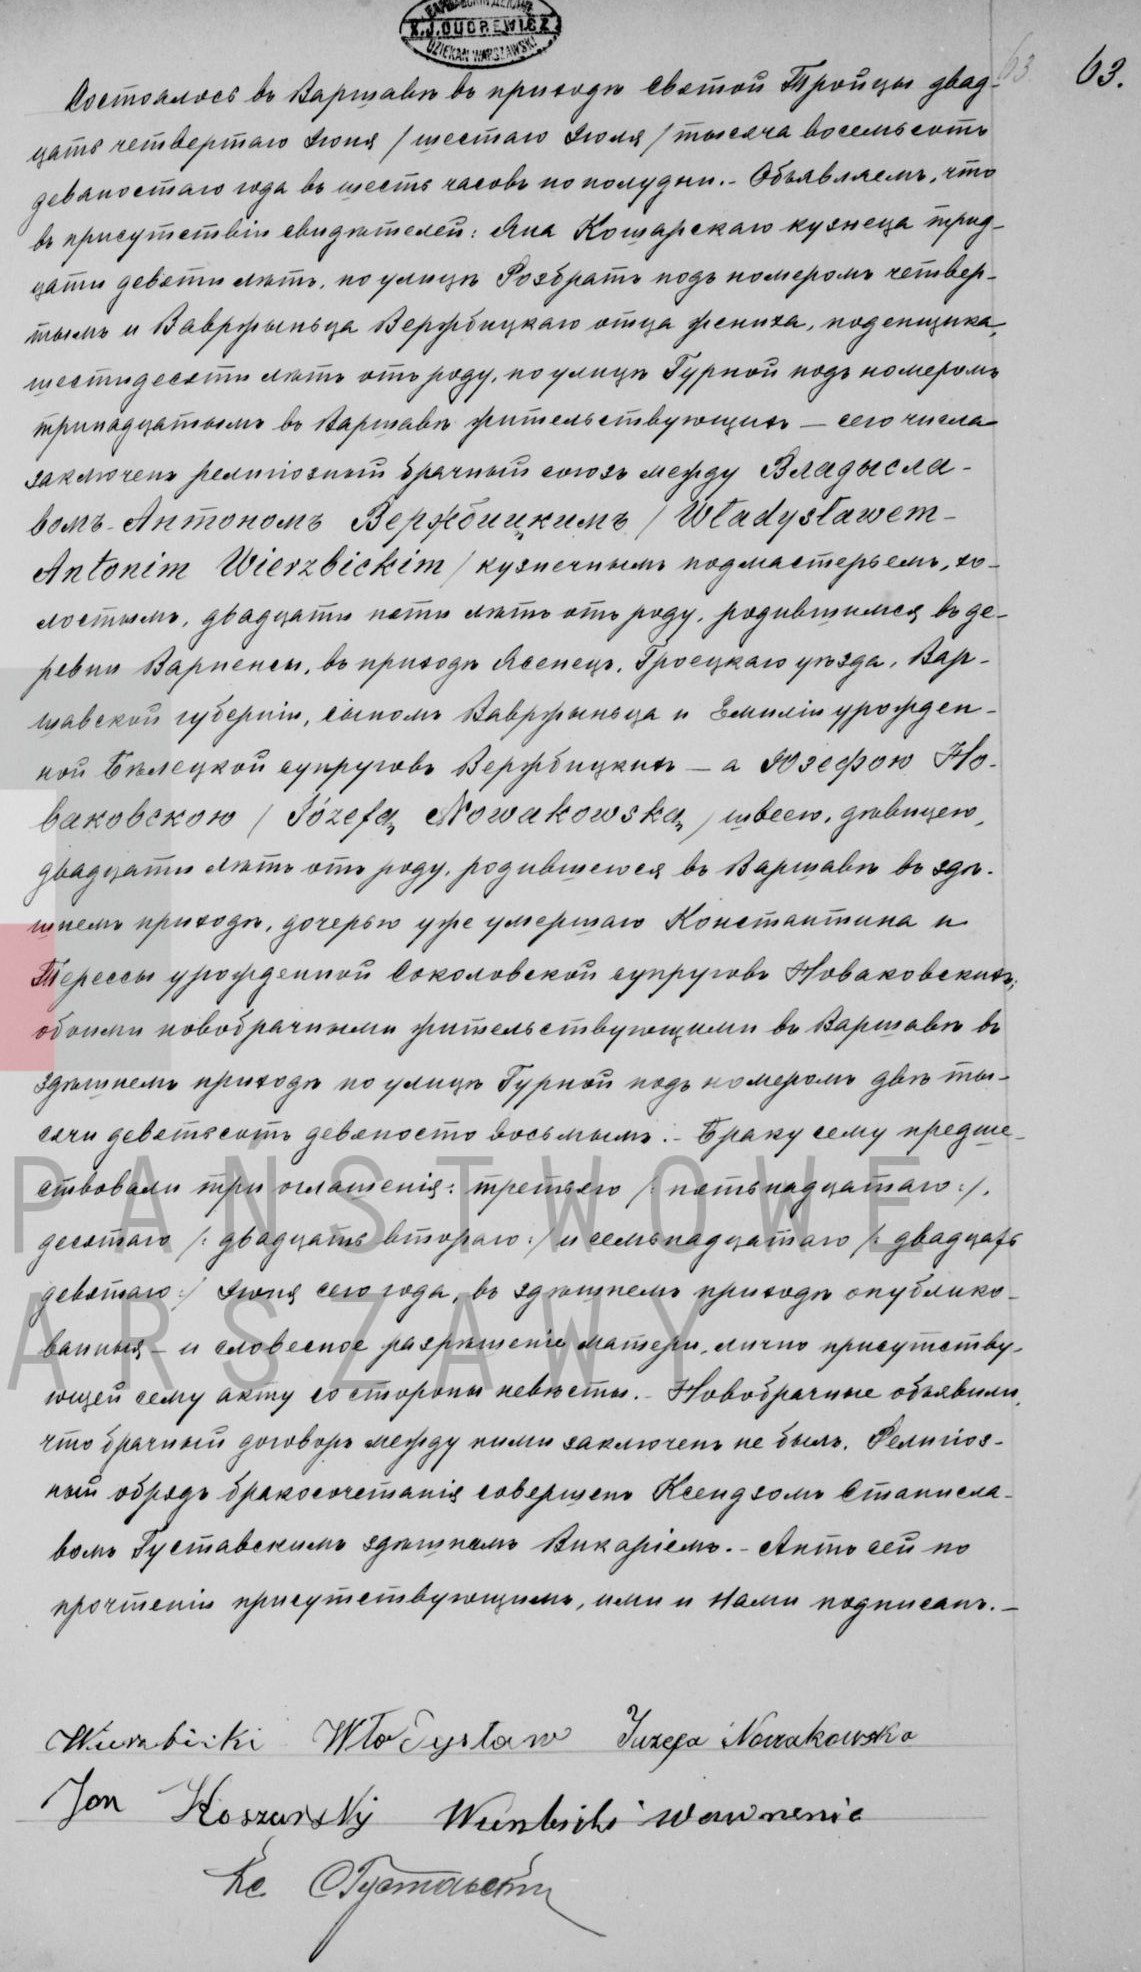 X.J. DUDREWICZ
DZIEKAN WARSZAWSKI
63.
63.
Состоялось въ Варшавѣ въ приходѣ Святой Тройцы двад-
цать четвертаго Іюня / шестаго Іюля / тысяча восемьсотъ
девяностаго года въ шесть часовъ пополудни.- Объявляемъ, что
въ присутствіи свидѣтелей: Яна Кошарскаго кузнеца трид-
цати девяти лѣтъ, по улицѣ Розбратъ подъ номеромъ четвер-
тымъ и Вавржыньца Вержбицкаго отца жениха, поденщика,
шестидесяти лѣтъ отъ роду, по улицѣ Гурной подъ номеромъ
тринадцатымъ въ Варшавѣ жительствующихъ – сего числа
заключенъ религіозный брачный союзъ между Владысла-
вомъ-Антономъ Вержбицкимъ / Władysławem-
Antonim Wierzbickim / кузнечнымъ подмастерьемъ, хо-
лостымъ, двадцати пяти лѣтъ отъ роду, родившимся въ де-
ревни Варпенсы, въ приходѣ Ясенецъ, Гроецкаго уѣзда, Вар-
шавской губерніи, сыномъ Вавржыньца и Емиліи урожден-
ной Бѣлецкой супруговъ Вержбицкихъ – а Юзефою Но-
ваковскою / Józefą Nowakowską / швеею, дѣвицею,
двадцати лѣтъ отъ роду, родившеюся въ Варшавѣ въ здѣ-
шнемъ приходѣ, дочерью уже умершаго Константина и
Терессы урожденной Соколовской супруговъ Новаковскихъ;
обоими новобрачными жительствующими въ Варшавѣ въ
здѣшнемъ приходѣ по улицѣ Гурной подъ номеромъ двѣ ты-
сячи девятьсотъ девяносто восьмымъ.- Браку сему предше-
ствовали три оглашенія: третьяго /: пятьнадцатаго :/,
десятаго /: двадцать втораго :/ и семьнадцатаго /: двадцать
девятаго :/ Іюня сего года, въ здѣшнемъ приходѣ опублико-
ванныя – и словесное разрѣшеніе матери, лично присутству-
ющей сему акту со стороны невѣсты.- Новобрачные объявили,
что брачный договоръ между ними заключенъ не былъ. Религіоз-
ный обрядъ бракосочетанія совершенъ Ксендзомъ Станисла-
вомъ Густавскимъ здѣшнимъ Викаріемъ.- Актъ сей по
прочтеніи присутствующимъ, ими и Нами подписанъ.–
Wierzbicki Włodysław Juzefa Nowakowska
Jan Koszarskij Wierzbicki Wawrzeniec
Кс. С Густавскій
PAŃSTWOWE
ARSZAWY